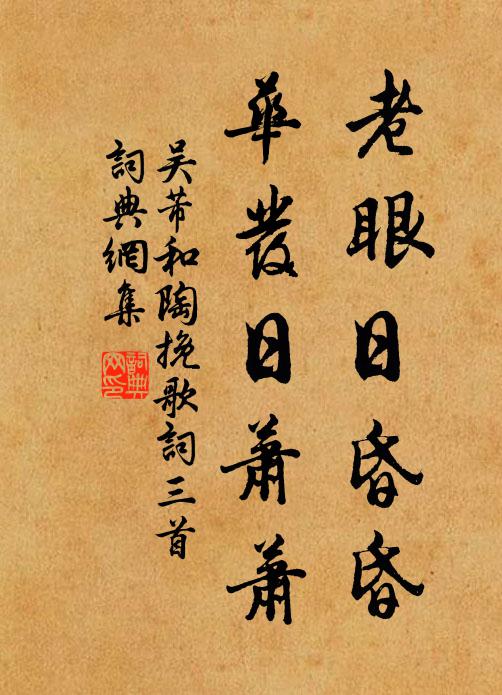 老眼日昏昏
華發日蕭蕭
吴芾和陶挽歌詞三首
詞典網集
詞典
网印